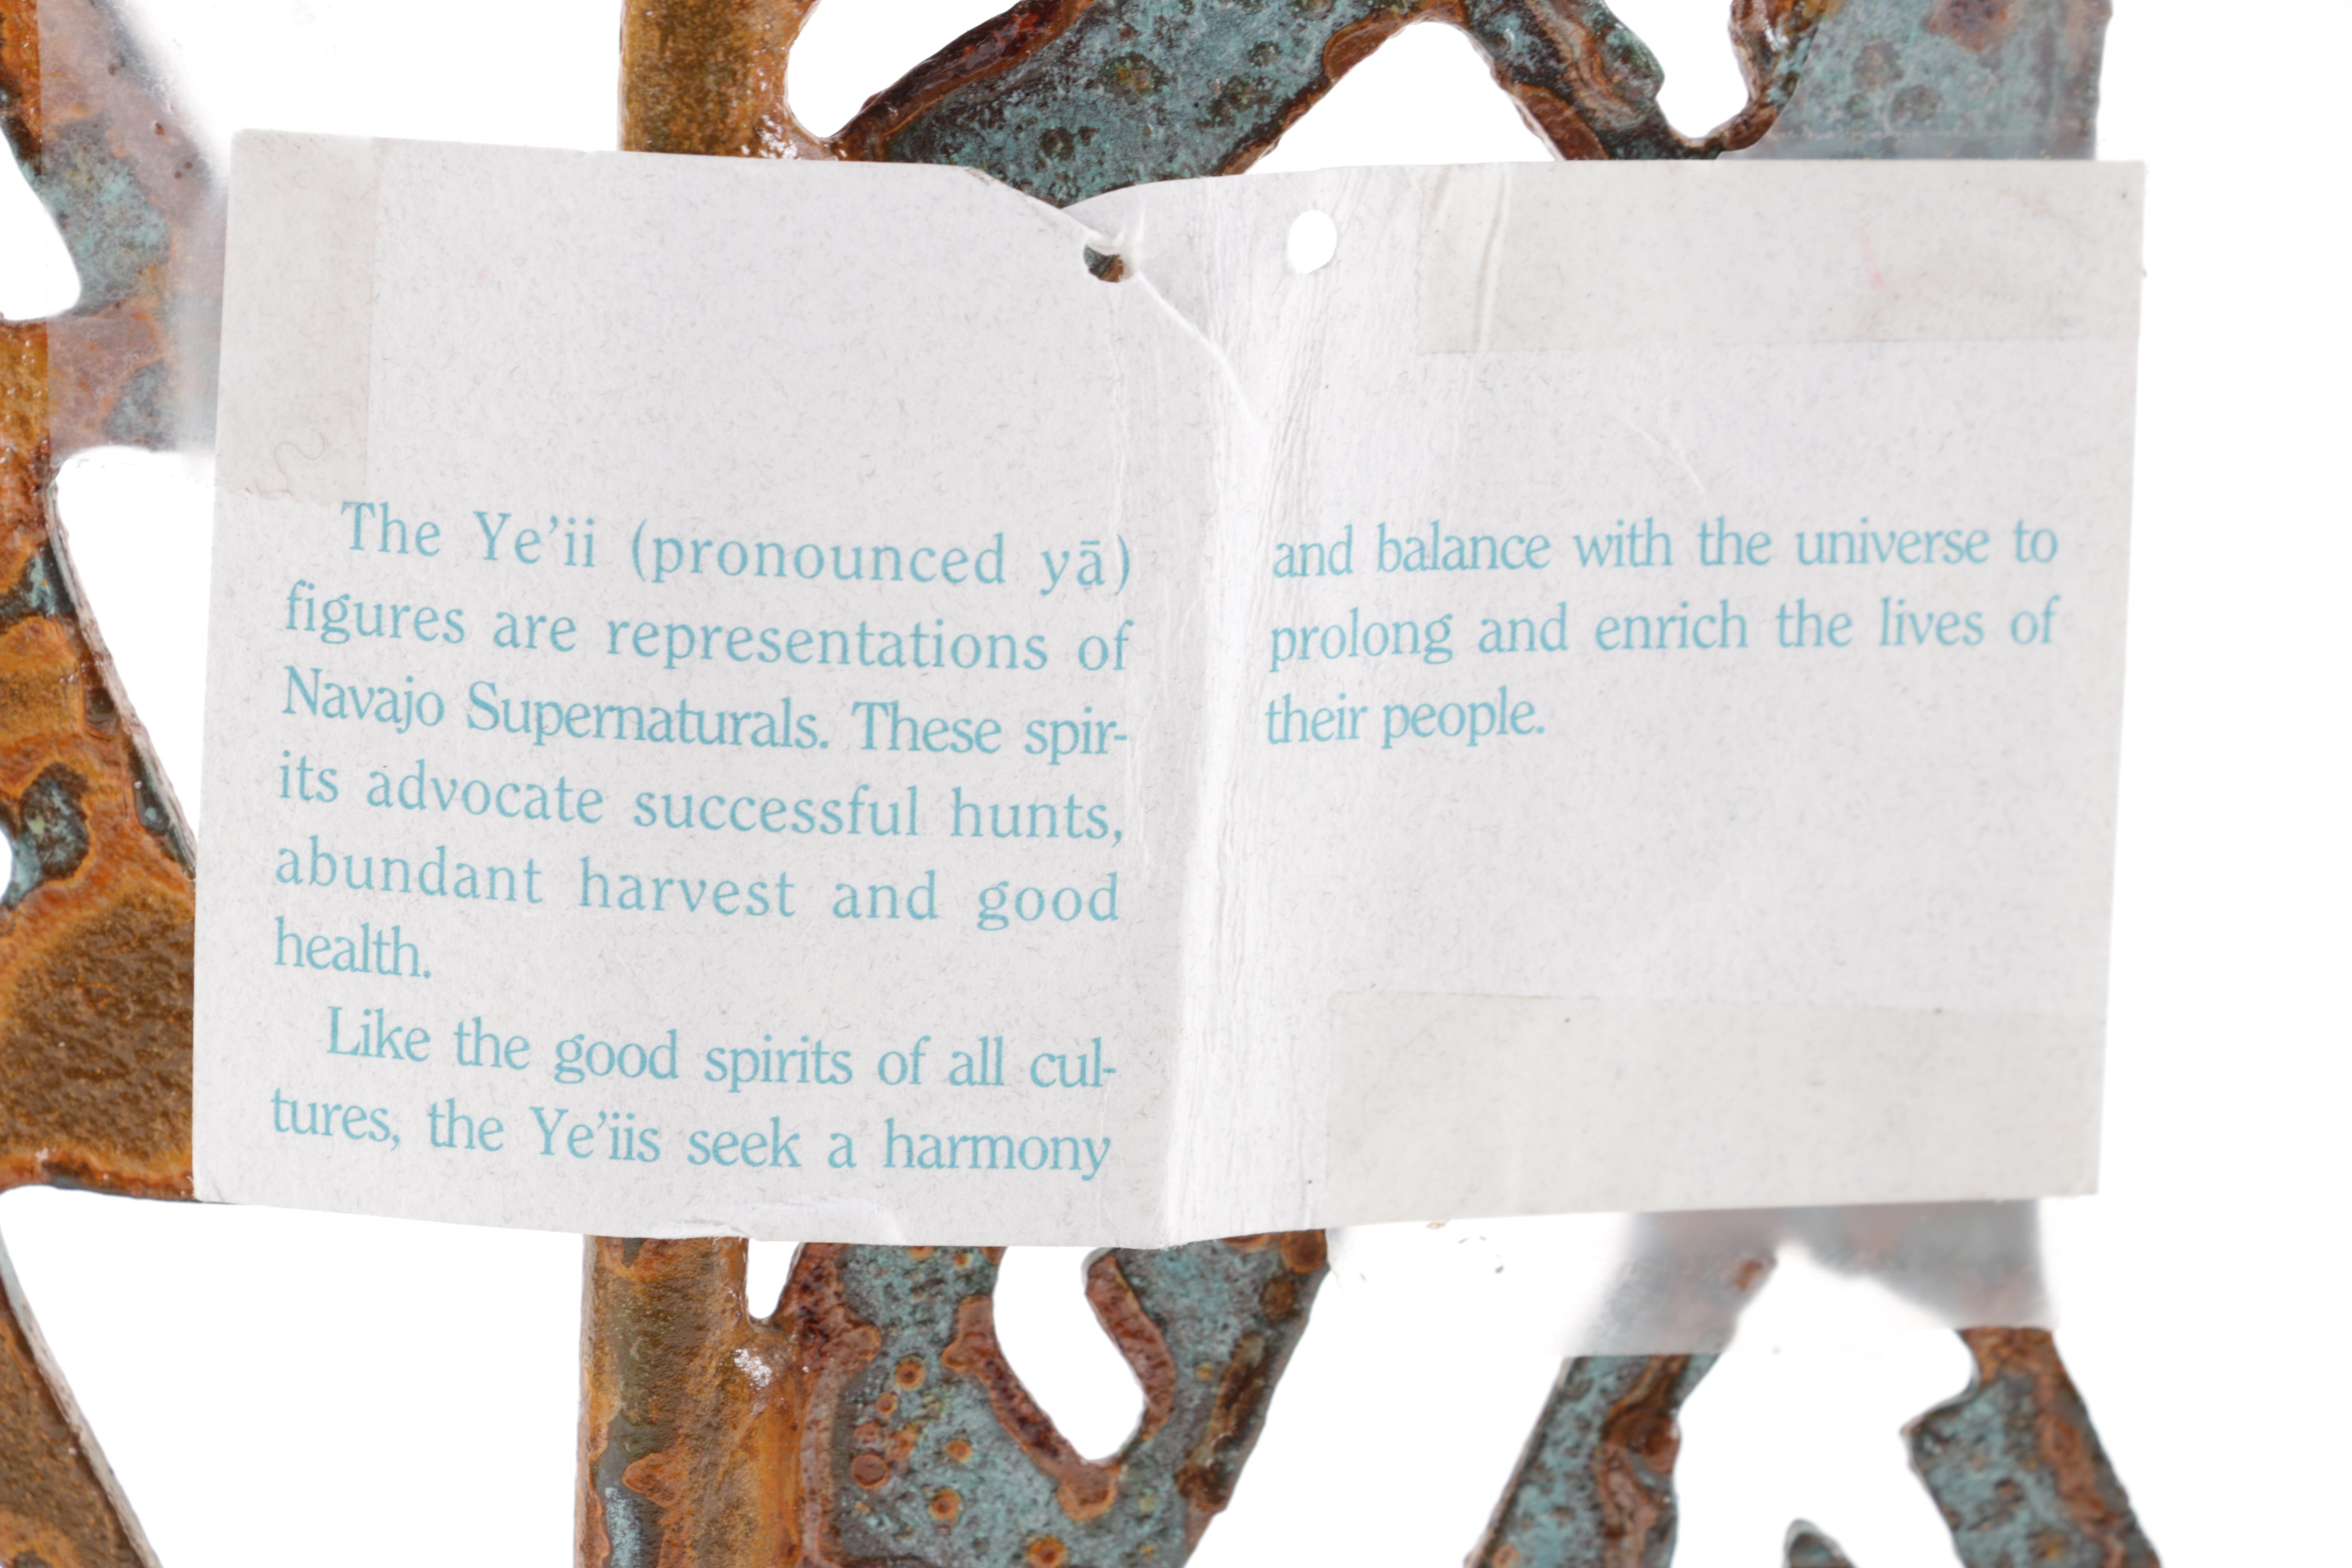 The Ye'ii (pronounced yā)
figures are representations of
Navajo Supernaturals. These spir-
its advocate successful hunts,
abundant harvest and good
health.
Like the good spirits of all cul-
tures, the Ye'iis seek a harmony
and balance with the universe to
prolong and enrich the lives of
their people.